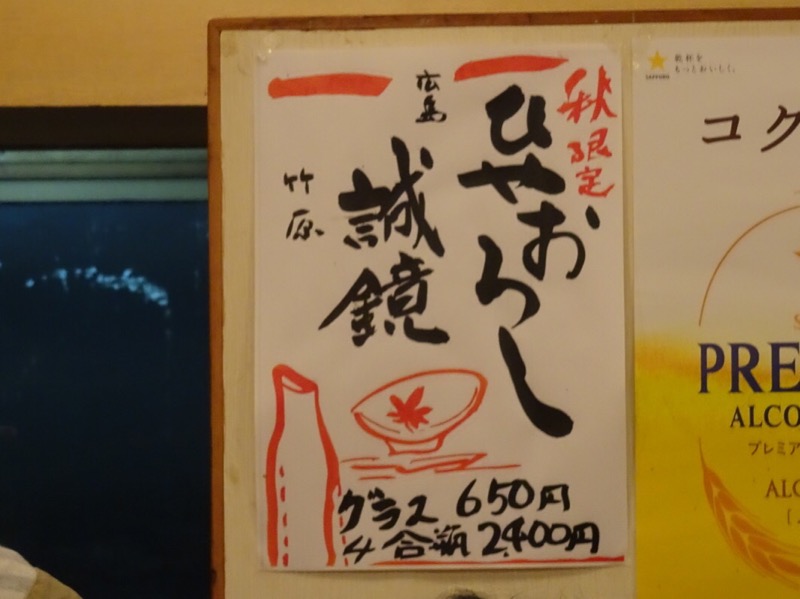 秋限定
ひやおろし
広島
誠鏡
竹原
グラス 650円
4合瓶 2,400円
SAPPORO
乾杯を
もっとおいしく。
コク
PRE
ALCO
プレミア